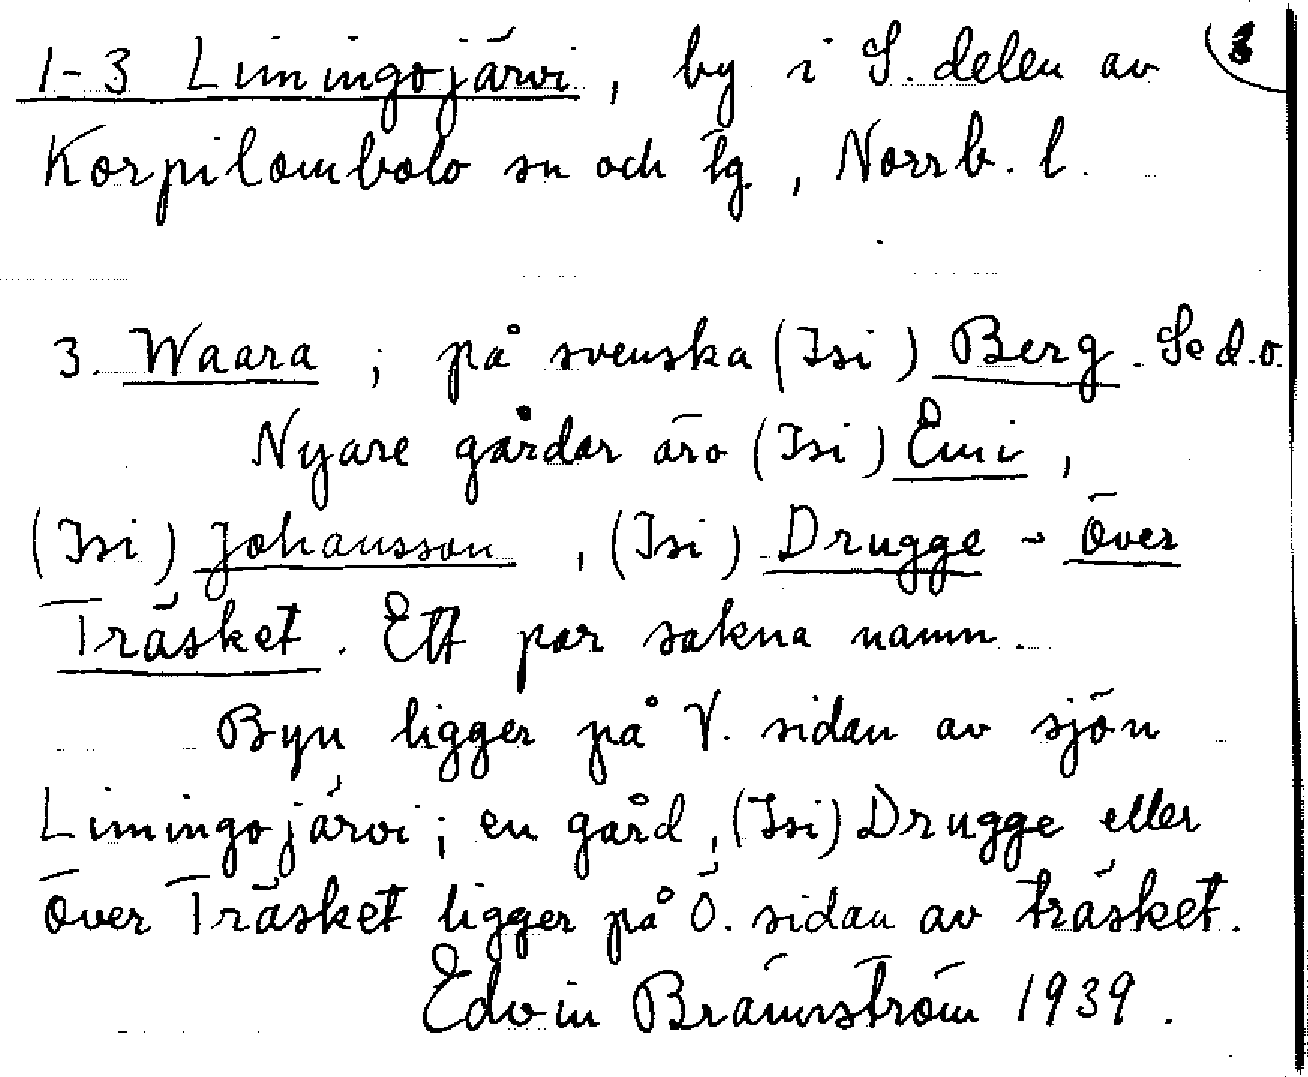 1-3 Limingojärvi, by i S. delen av 3
Korpilombolo sn och tg., Norrb. l.
3. Waara; på svenska (Isi) Berg. Se d.o.
Nyare gårdar äro (Isi) Emi,
(Isi) Johansson, (Isi) Drugge ~ Över
Träsket. Ett par sakna namn.
Byn ligger på V. sidan av sjön
Limingojärvi; en gård, (Isi) Drugge eller
Över Träsket ligger på Ö. sidan av träsket.
Edvin Brännström 1939.